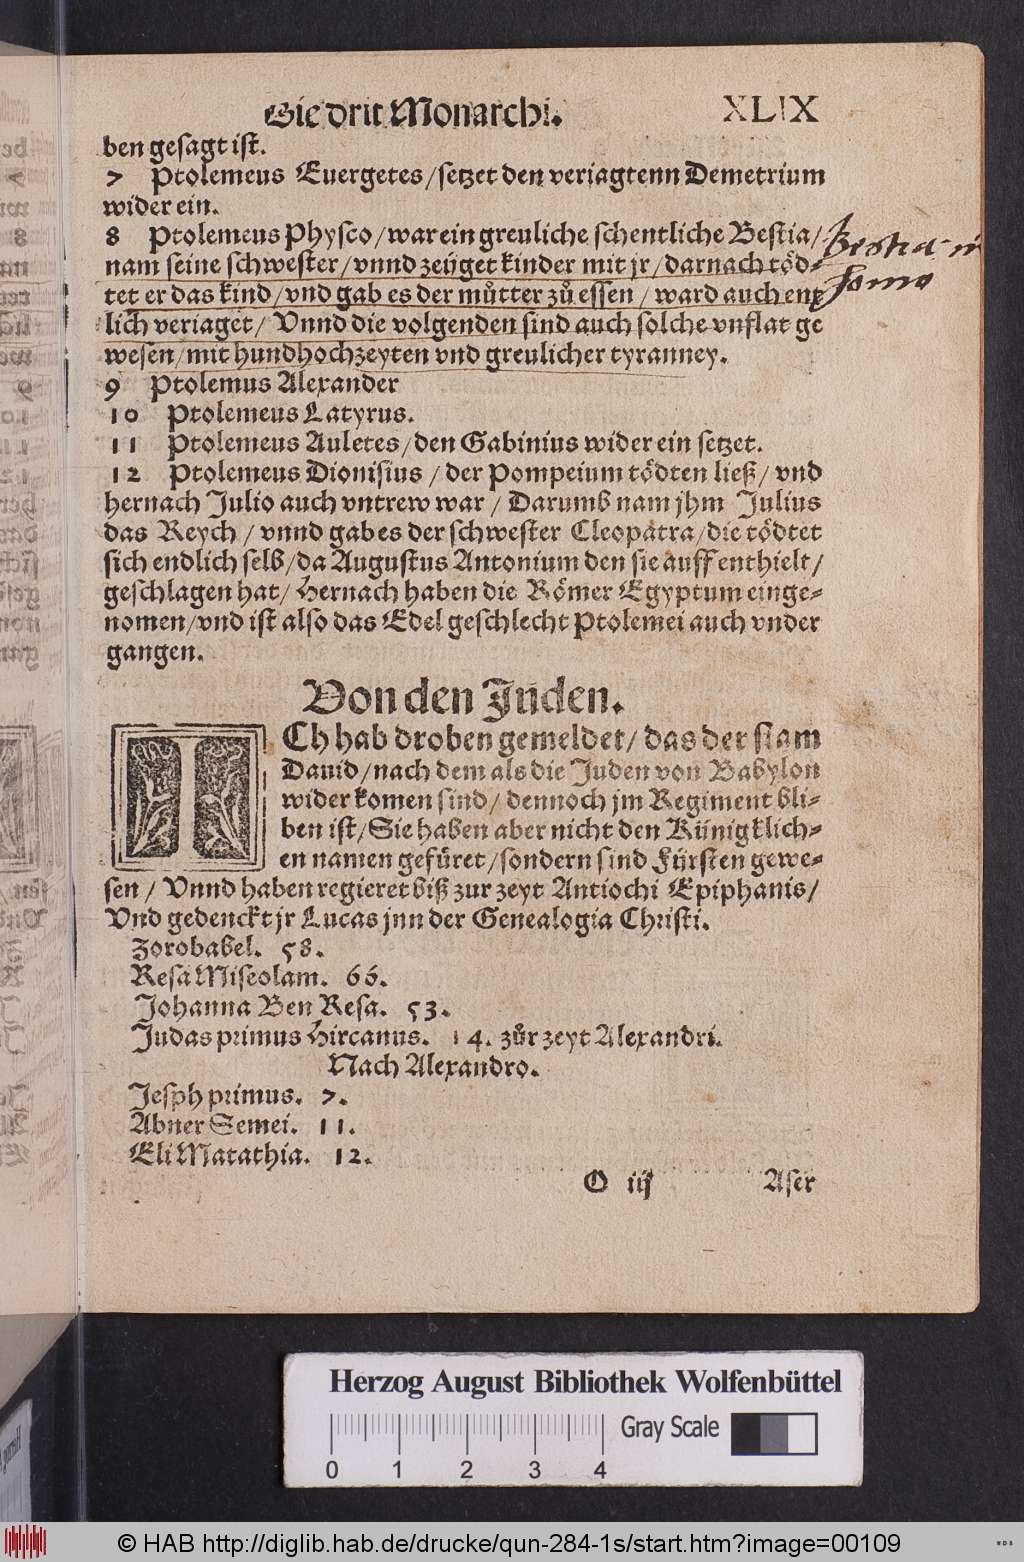 Die drit Monarchi. XLIX
ben gesagt ist.
7 Ptolemeus Euergetes/setzet den veriagtenn Demetrium
wider ein.
8 Ptolemeus Physco/war ein greuliche schentliche Bestia/
nam seine schwester/vnnd zeüget kinder mit jr/darnach töd-
tet er das kind/vnd gab es der můtter zů essen/ward auch ent
lich veriaget/Vnnd die volgenden sind auch solche vnflat ge
wesen/mit hundhochzeyten vnd greulicher tyranney.
Bestia in
homo
9 Ptolemus Alexander
10 Ptolemeus Latyrus.
11 Ptolemeus Auletes/den Gabinius wider ein setzet.
12 Ptolemeus Dionisius/der Pompeium tödten ließ/vnd
hernach Julio auch vntrew war/Darumb nam jhm Julius
das Reych/vnnd gab es der schwester Cleopatra/die tödtet
sich endlich selb/da Augustus Antonium den sie auff enthielt/
geschlagen hat/Hernach haben die Römer Egyptum einge-
nomen/vnd ist also das Edel geschlecht Ptolemei auch vnder
gangen.
Von den Juden.
ICh hab droben gemeldet/das der stam
Dauid/nach dem als die Juden von Babylon
wider komen sind/dennoch jm Regiment bli-
ben ist/Sie haben aber nicht den Künigklich-
en namen gefüret/sondern sind Fürsten gewe-
sen/Vnnd haben regieret biß zur zeyt Antiochi Epiphanis/
Vnd gedenckt jr Lucas jnn der Genealogia Christi.
Zorobabel. 58.
Resa Miseolam. 66.
Johanna Ben Resa. 53.
Judas primus Hircanus. 14. zůr zeyt Alexandri.
Nach Alexandro.
Jesph primus. 7.
Abner Semei. 11.
Eli Matathia. 12.
O iij Aser
Herzog August Bibliothek Wolfenbüttel
Gray Scale
0 1 2 3 4
© HAB http://diglib.hab.de/drucke/qun-284-1s/start.htm?image=00109